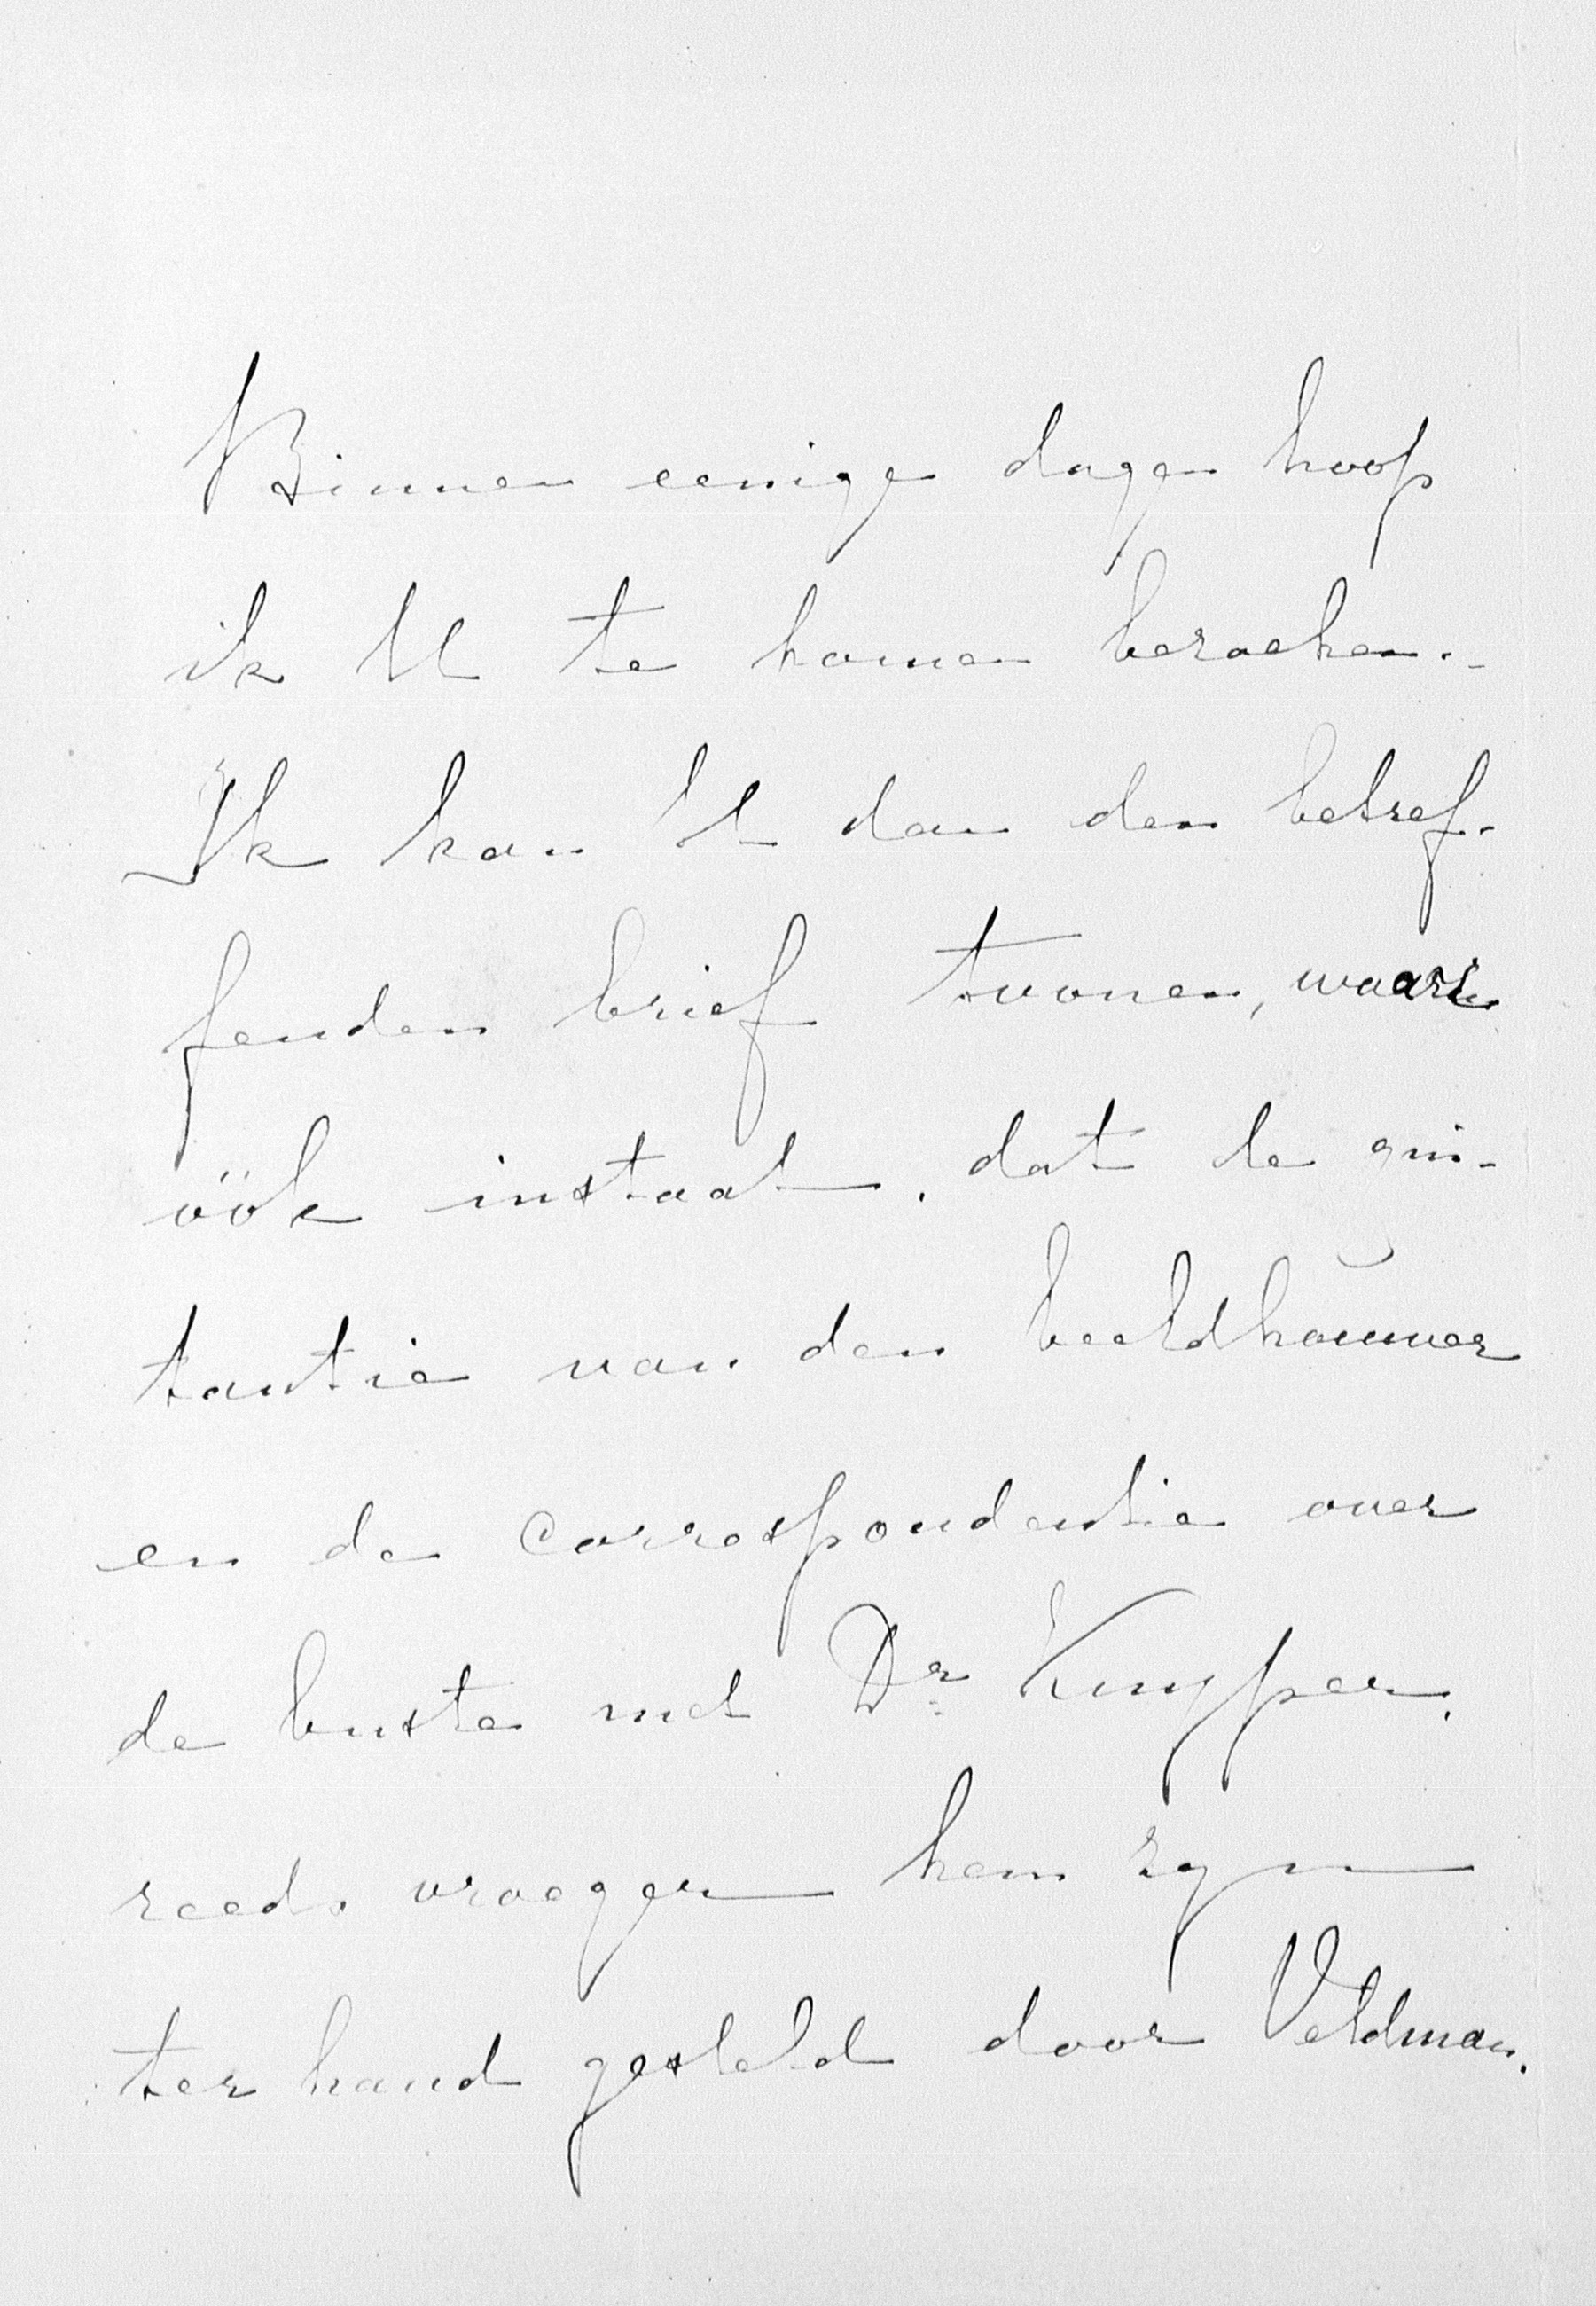 Binnen eenige dagen hoop
ik U te komen bezoeken.-
Ik kan U dan den betref-
fenden brief toonen, waarin
óók instaat, dat de qui-
tantie van den beeldhouwer
en de correspondentie over
de buste met Dr. Kuyper.
reeds vroeger hem zyn
ter hand gesteld door Veldman.